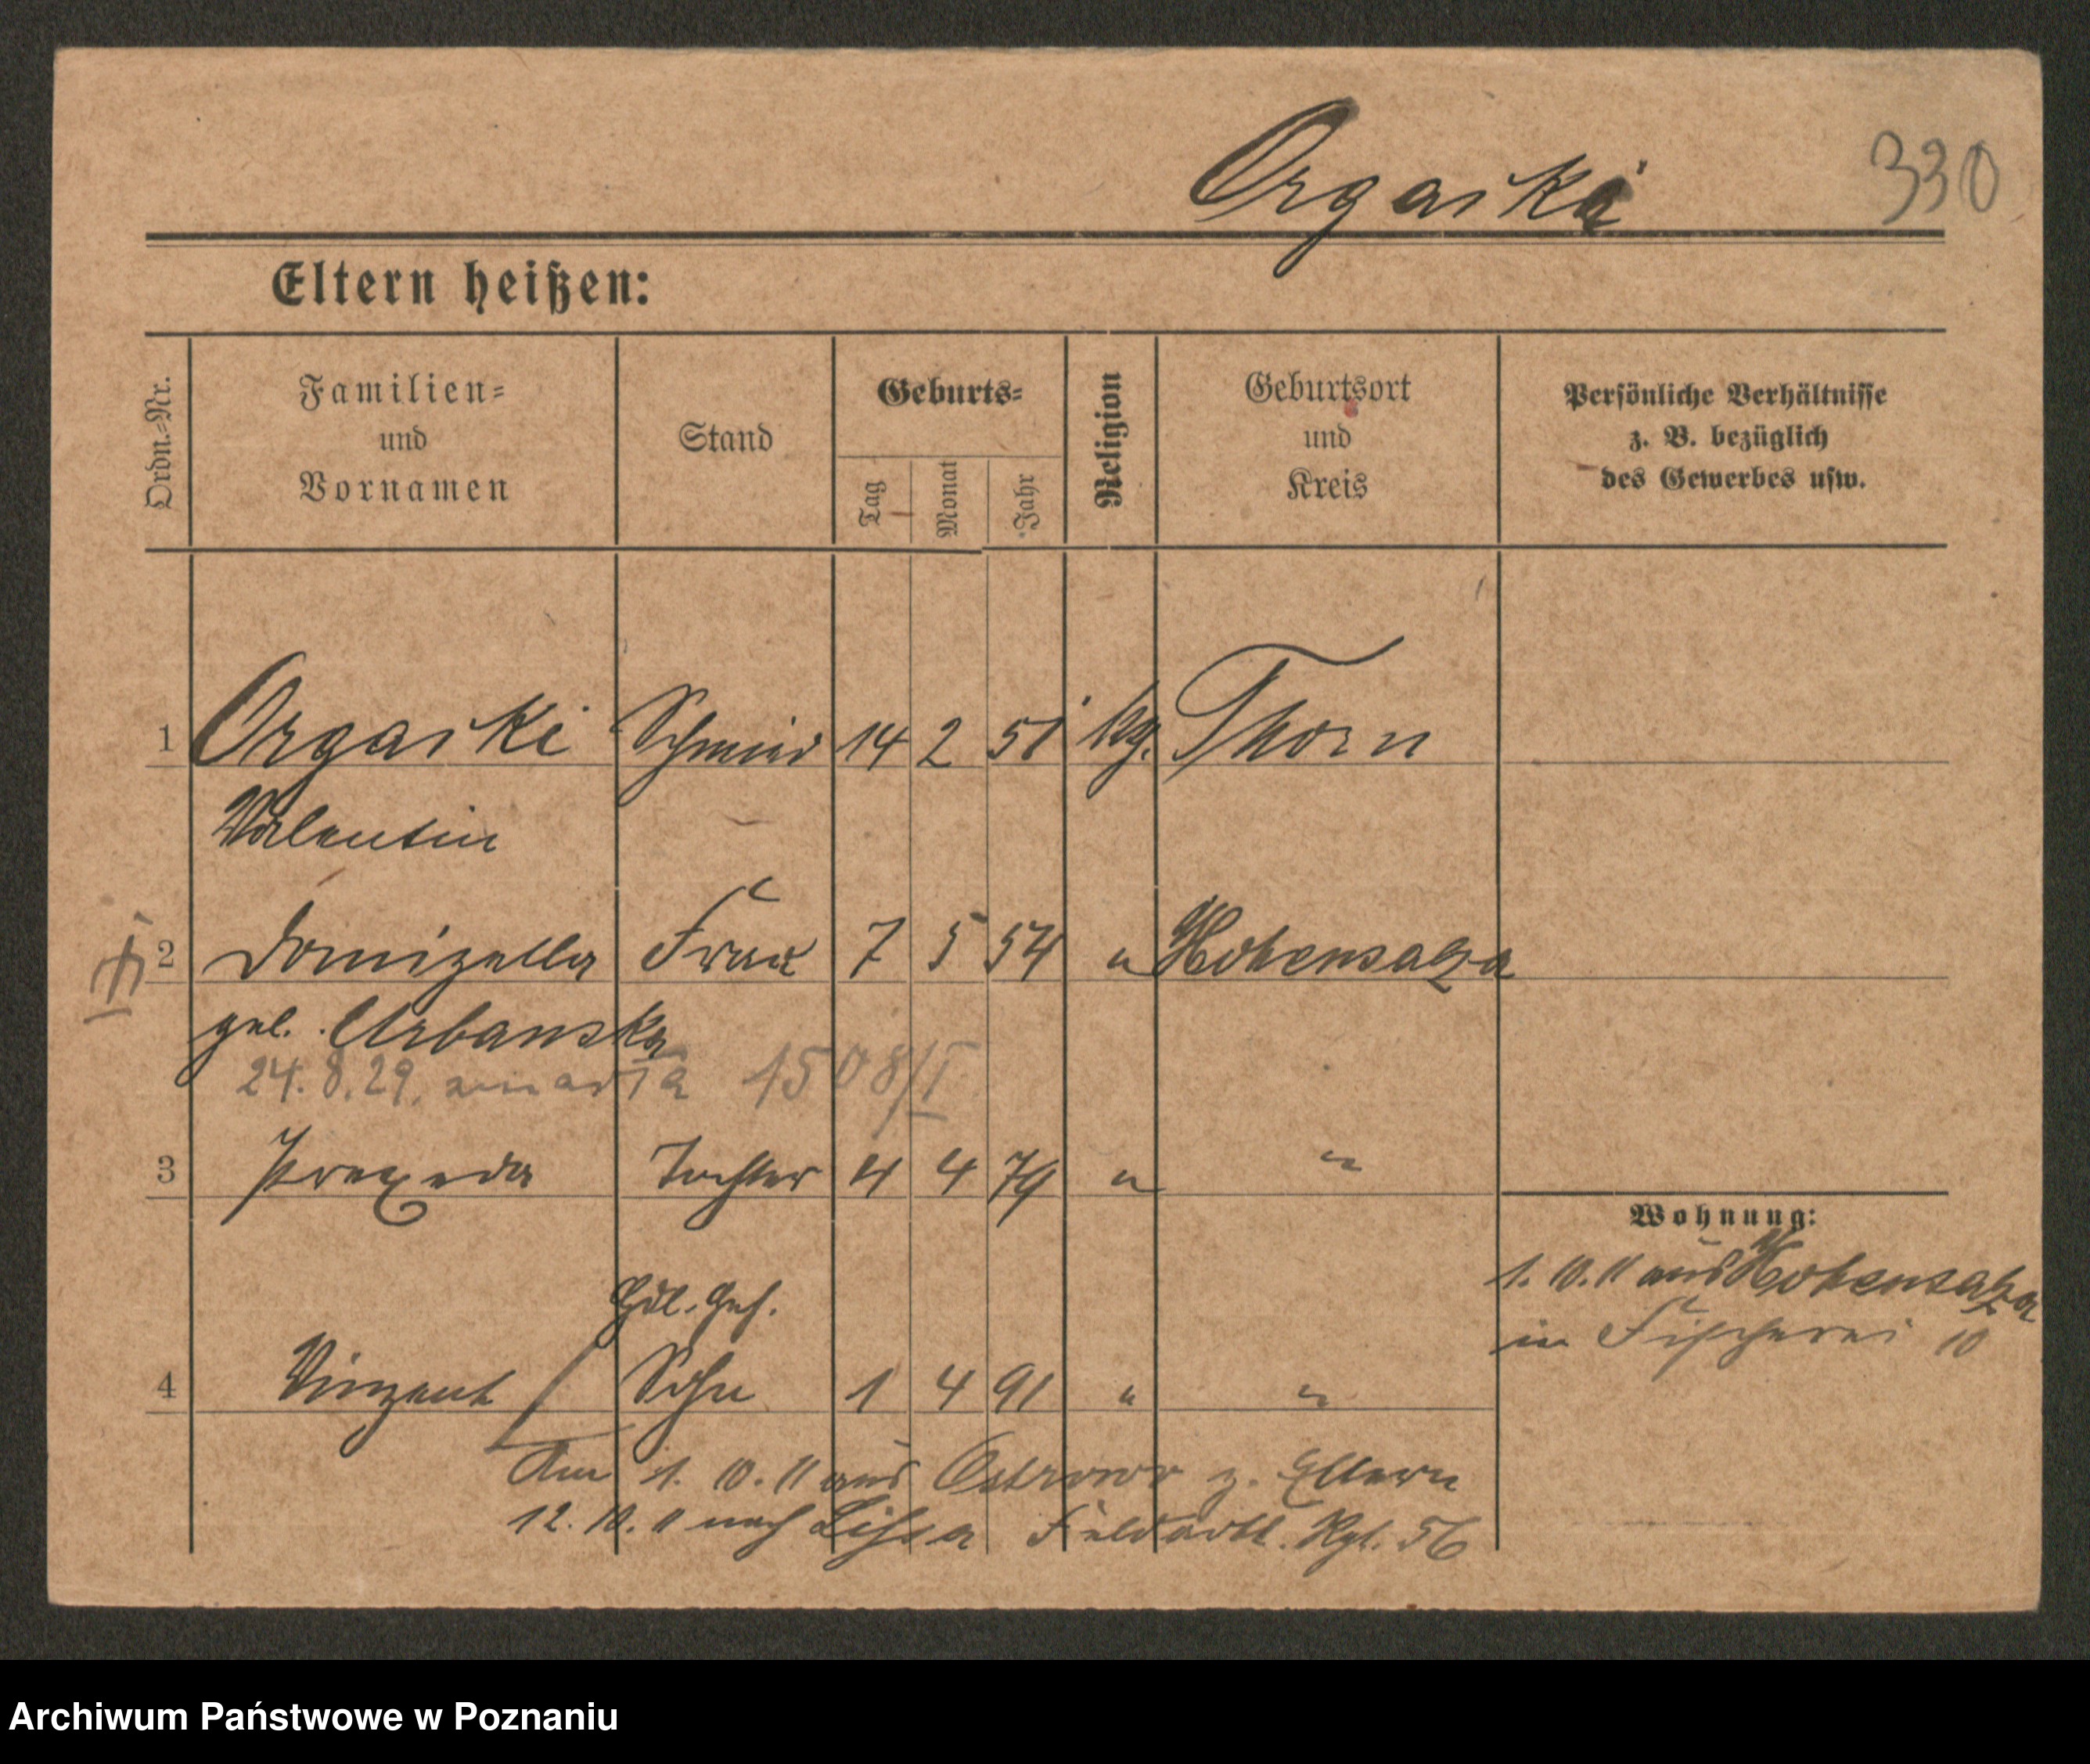 Orgaski
330
Eltern heißen:
Ordn.-Nr.
Familien-
und
Vornamen
Stand
Geburts-
Tag
Monat
Jahr
Religion
Geburtsort
und
Kreis
Persönliche Verhältnisse
z. B. bezüglich
des Gewerbes usw.
1 Orgaski Schmied 14 2 51 kg. Thorn
Valentin
2 Domizella Frau 7 5 54 " Hohensalza
geb. Urbanska
24.8.29. zmarła 1508/I
3 Praxeda Tochter 4 4 79 " "
Wohnung:
1.10.11 aus Hohensalza
in Fischerei 10
Hdl. Geh.
4 Vinzent Sohn 1 4 91 " "
Am 1.10.11 aus Ostrowo z. Eltern
12.10.11 nach Lissa Feldartl. Rgt. 56
Archiwum Państwowe w Poznaniu